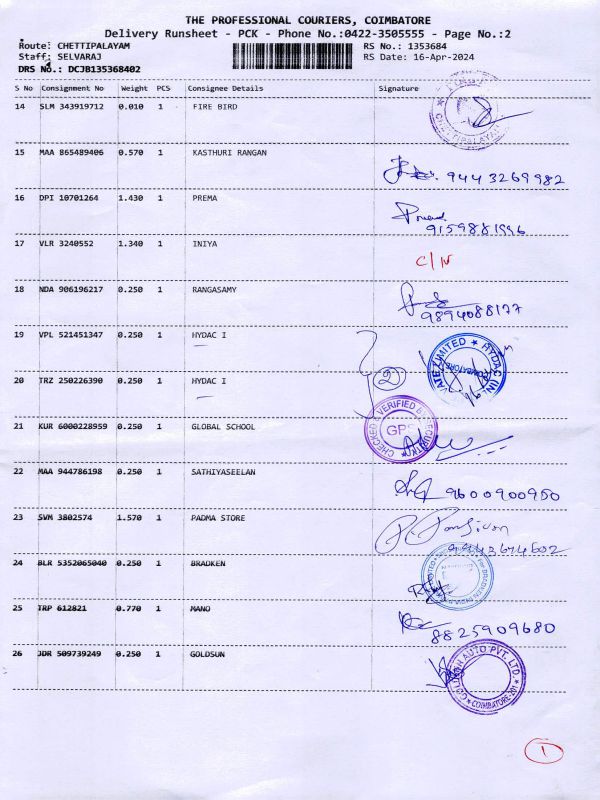 THE PROFESSIONAL COURIERS, COIMBATORE
Delivery Runsheet - PCK - Phone No.:0422-3505555 - Page No.:2
Route: CHETTIPALAYAM RS No.: 1353684
Staff: SELVARAJ RS Date: 16-Apr-2024
DRS No.: DCJB135368402
S No Consignment No Weight PCS Consignee Details Signature
14 SLM 343919712 0.010 1 FIRE BIRD
CHETTIPALAYAM
15 MAA 865489406 0.570 1 KASTHURI RANGAN
9443269982
16 DPI 10701264 1.430 1 PREMA
9159881996
17 VLR 3240552 1.340 1 INIYA
C/N
18 NDA 906196217 0.250 1 RANGASAMY
9894088177
19 VPL 521451347 0.250 1 HYDAC I
VATE LIMITED ★ HYDAC (IN
COIMBATORE
20 TRZ 250226390 0.250 1 HYDAC I
2
21 KUR 6000228959 0.250 1 GLOBAL SCHOOL
CHECKED & VERIFIED BY SECURITY
GPS
22 MAA 944786198 0.250 1 SATHIYASEELAN
9600900950
23 SVM 3802574 1.570 1 PADMA STORE
24 BLR 5352065040 0.250 1 BRADKEN
25 TRP 612821 0.770 1 MANO
8825909680
26 JDR 509739249 0.250 1 GOLDSUN
AUTO PVT. LTD.
★ COIMBATORE-201 ★
1